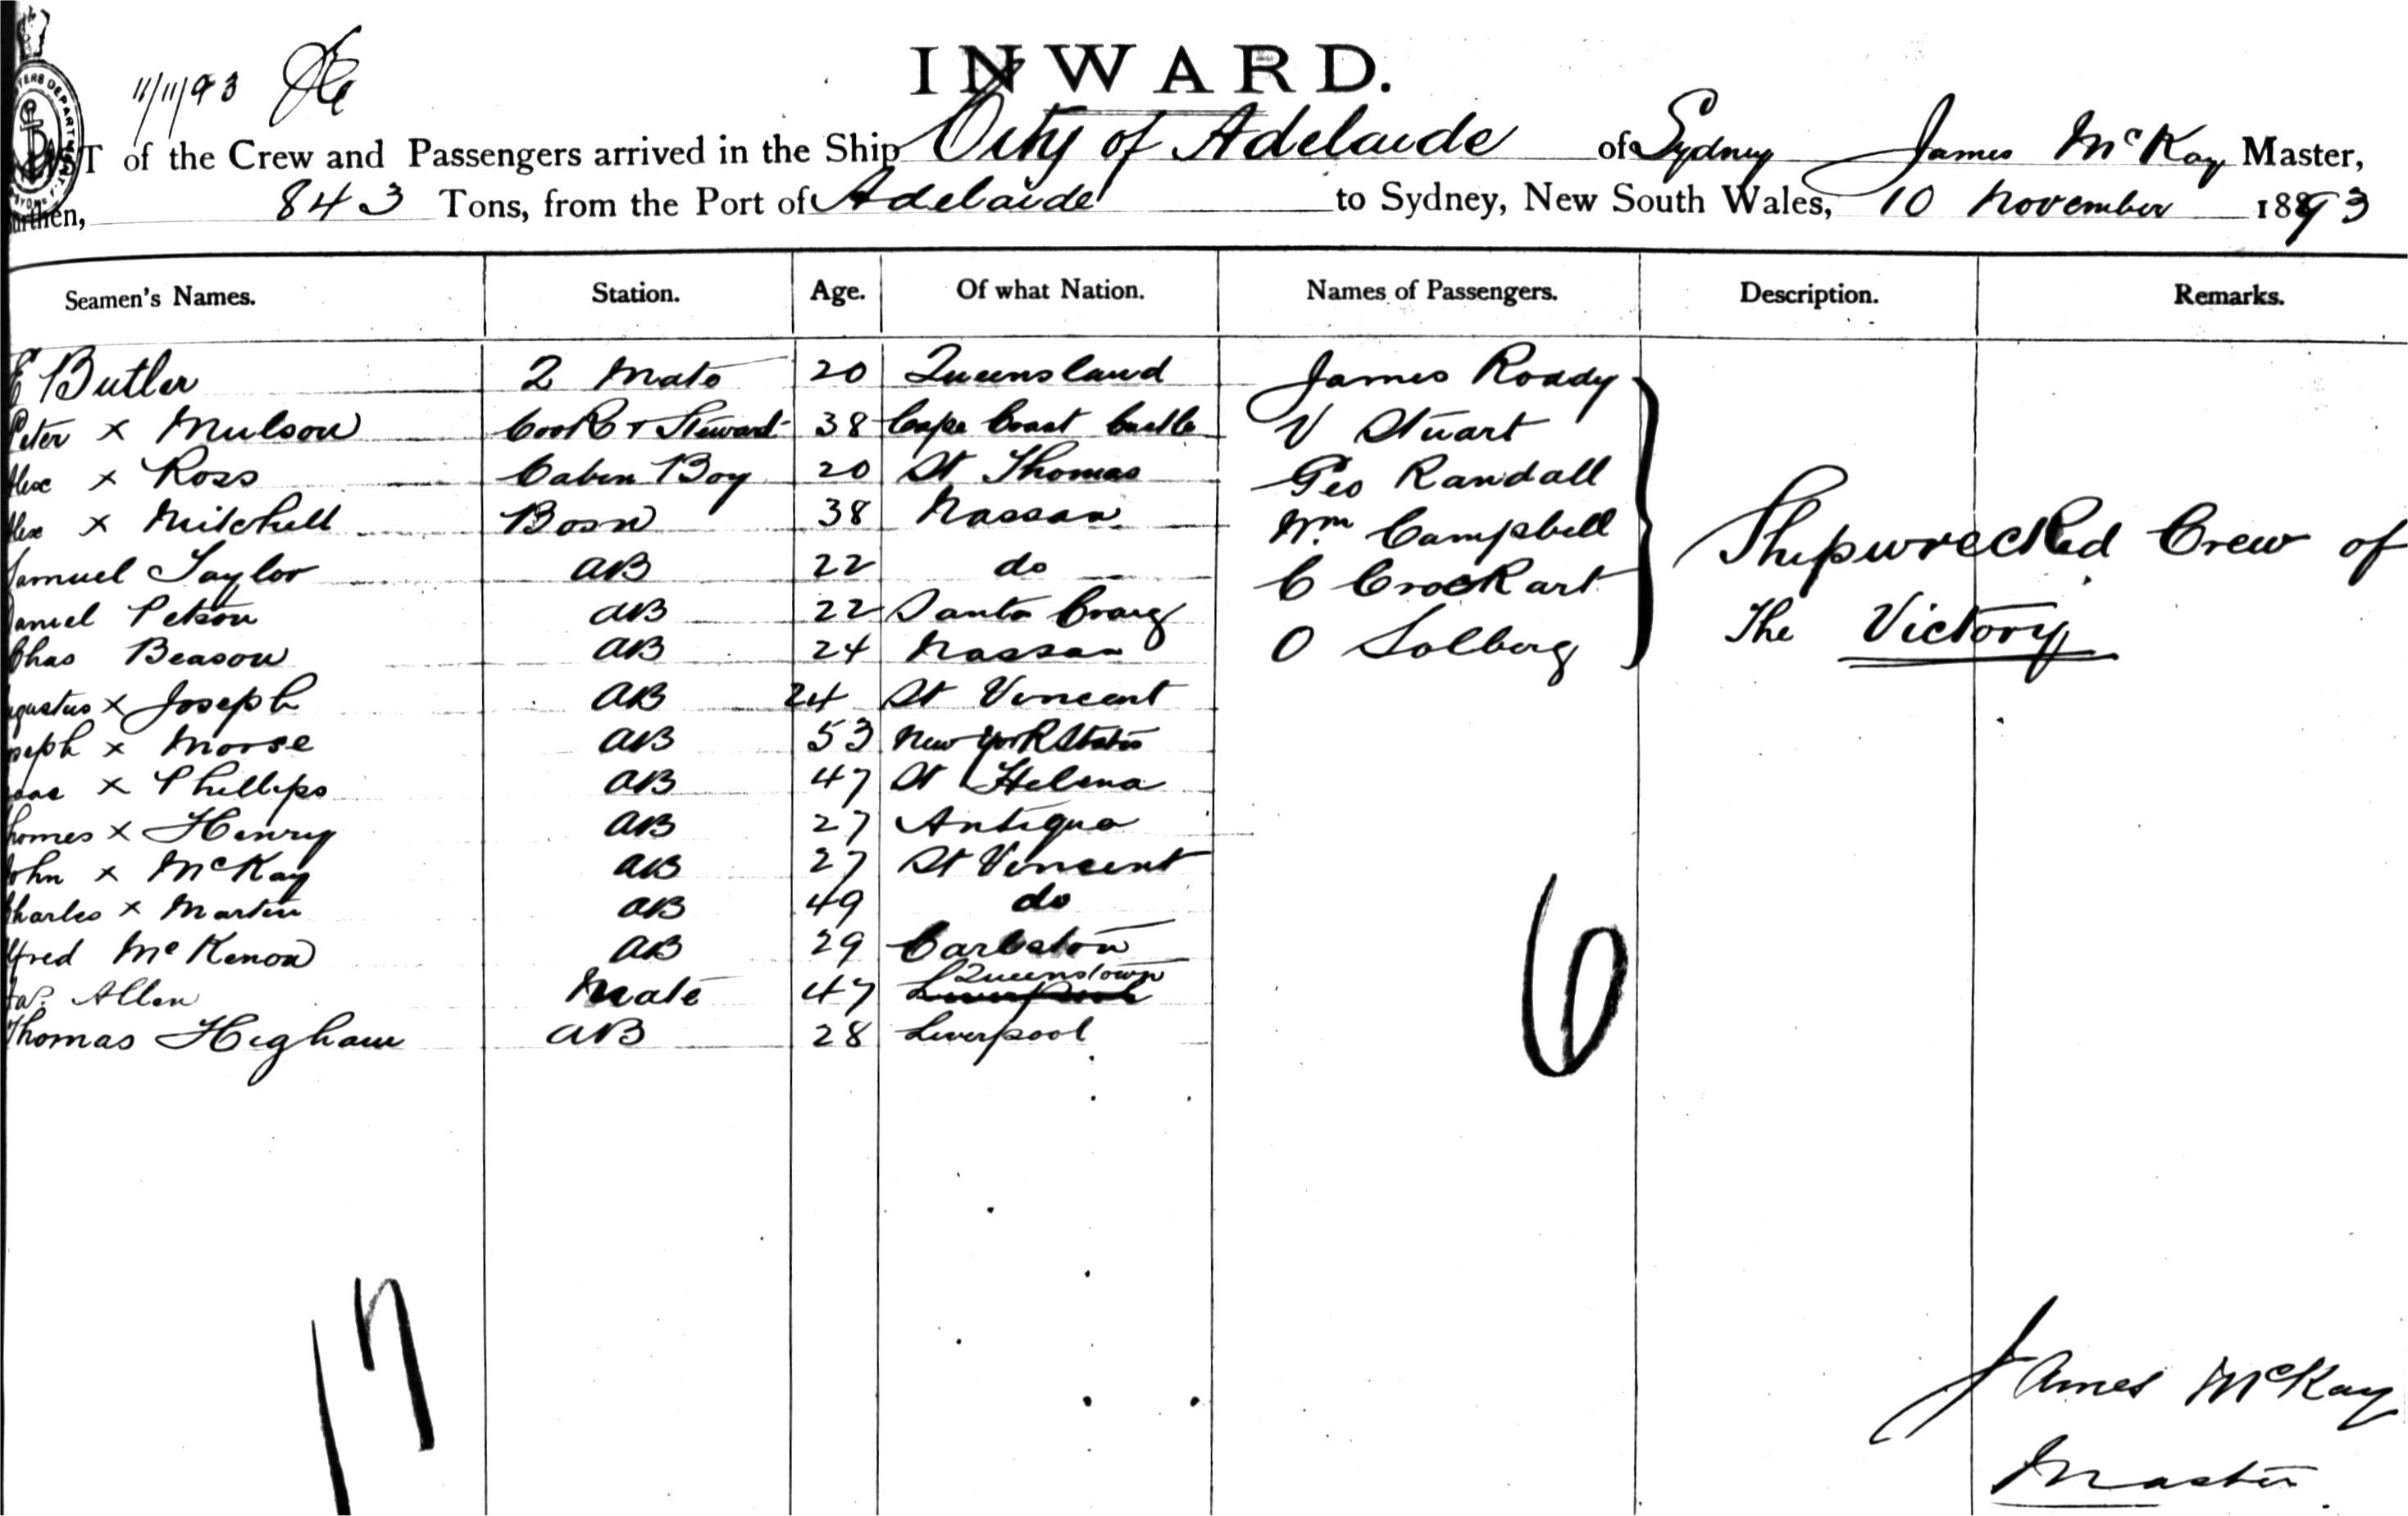 INWARD.
11/11/93
of the Crew and Passengers arrived in the Ship City of Adelaide of Sydney James McKay Master,
843 Tons, from the Port of Adelaide to Sydney, New South Wales, 10 November 1893
Seamen's Names. Station. Age. Of what Nation. Names of Passengers. Description. Remarks.
E Butler 2 Mate 20 Queensland James Roddy
Peter x Mulson Cook & Steward 38 Cape Coast Castle V Stuart
Alex x Ross Cabin Boy 20 St Thomas Geo Randall
Alex x Mitchell Bosn 38 Nassau Wm Campbell
Samuel Taylor AB 22 do C Crockart
Shipwrecked Crew of
Daniel AB 22 Santa O Solberg
The Victory
Chas Beason AB 24 Nassau
gustus x Joseph AB 24 St Vincent
seph x Morse AB 53 New York States
x Phillips AB 47 St Helena
homes x Henry AB 27 Antigua
John x McKay AB 27 St Vincent
Charles x Martin AB 49 do
lfred McKenon AB 29
Jas. Allen Mate 47 Queenstown
Thomas Higham AB 28 Liverpool
6
17
James McKay
Master